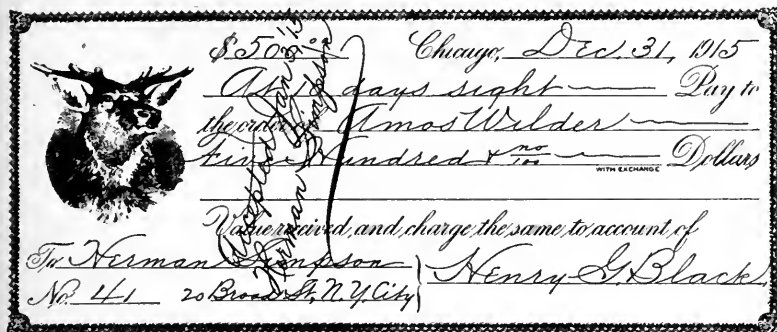 $500 00/100 Chicago, Dec. 31, 1915
At days sight Pay to
the order Amos Wilder
Five Hundred & no/100 Dollars
WITH EXCHANGE
Value received, and charge the same to account of
To Herman Simpson
Henry G. Black
No. 41 20 Broad St., N.Y. City
Accepted Jan.
Herman Simpson